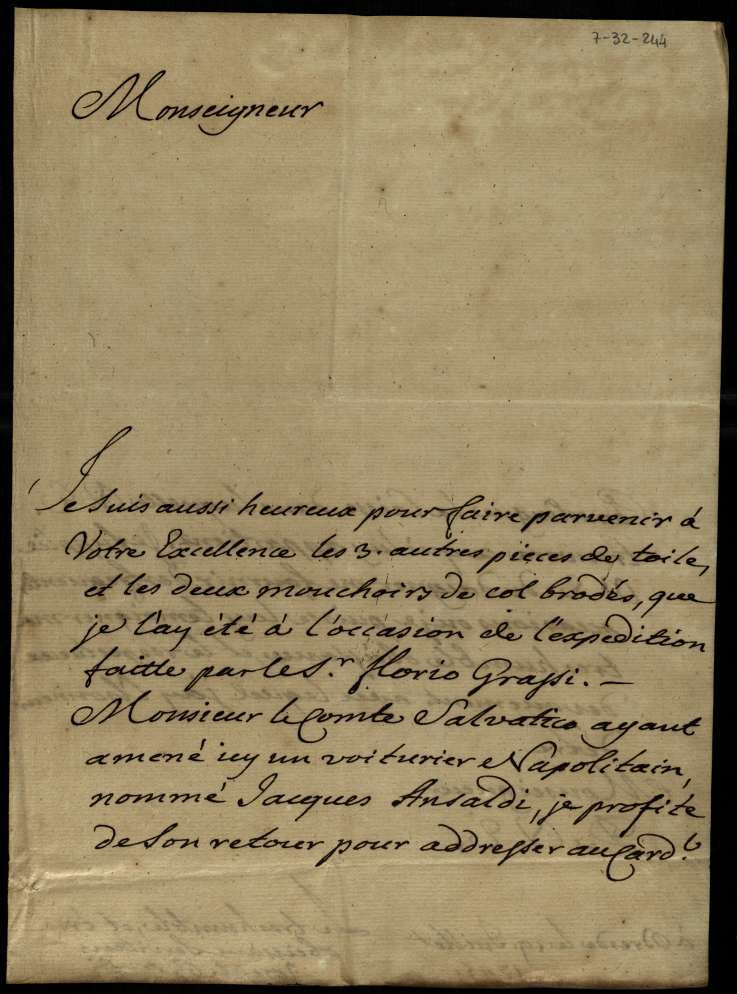 7-32-244
Monseigneur
Je suis aussi heureux pour faire parvenir à
Votre Excellence les 3. autres pieces de toile,
et les deux mouchoirs de col brodés, que
je l'ay été à l'occasion de l'expedition
faitte par le S.r florio Grassi. —
Monsieur le Comte Salvatico ayant
amené icy un voiturier Napolitain,
nommé Jacques Ansaldi, je profite
de son retour pour addresser au Card.l